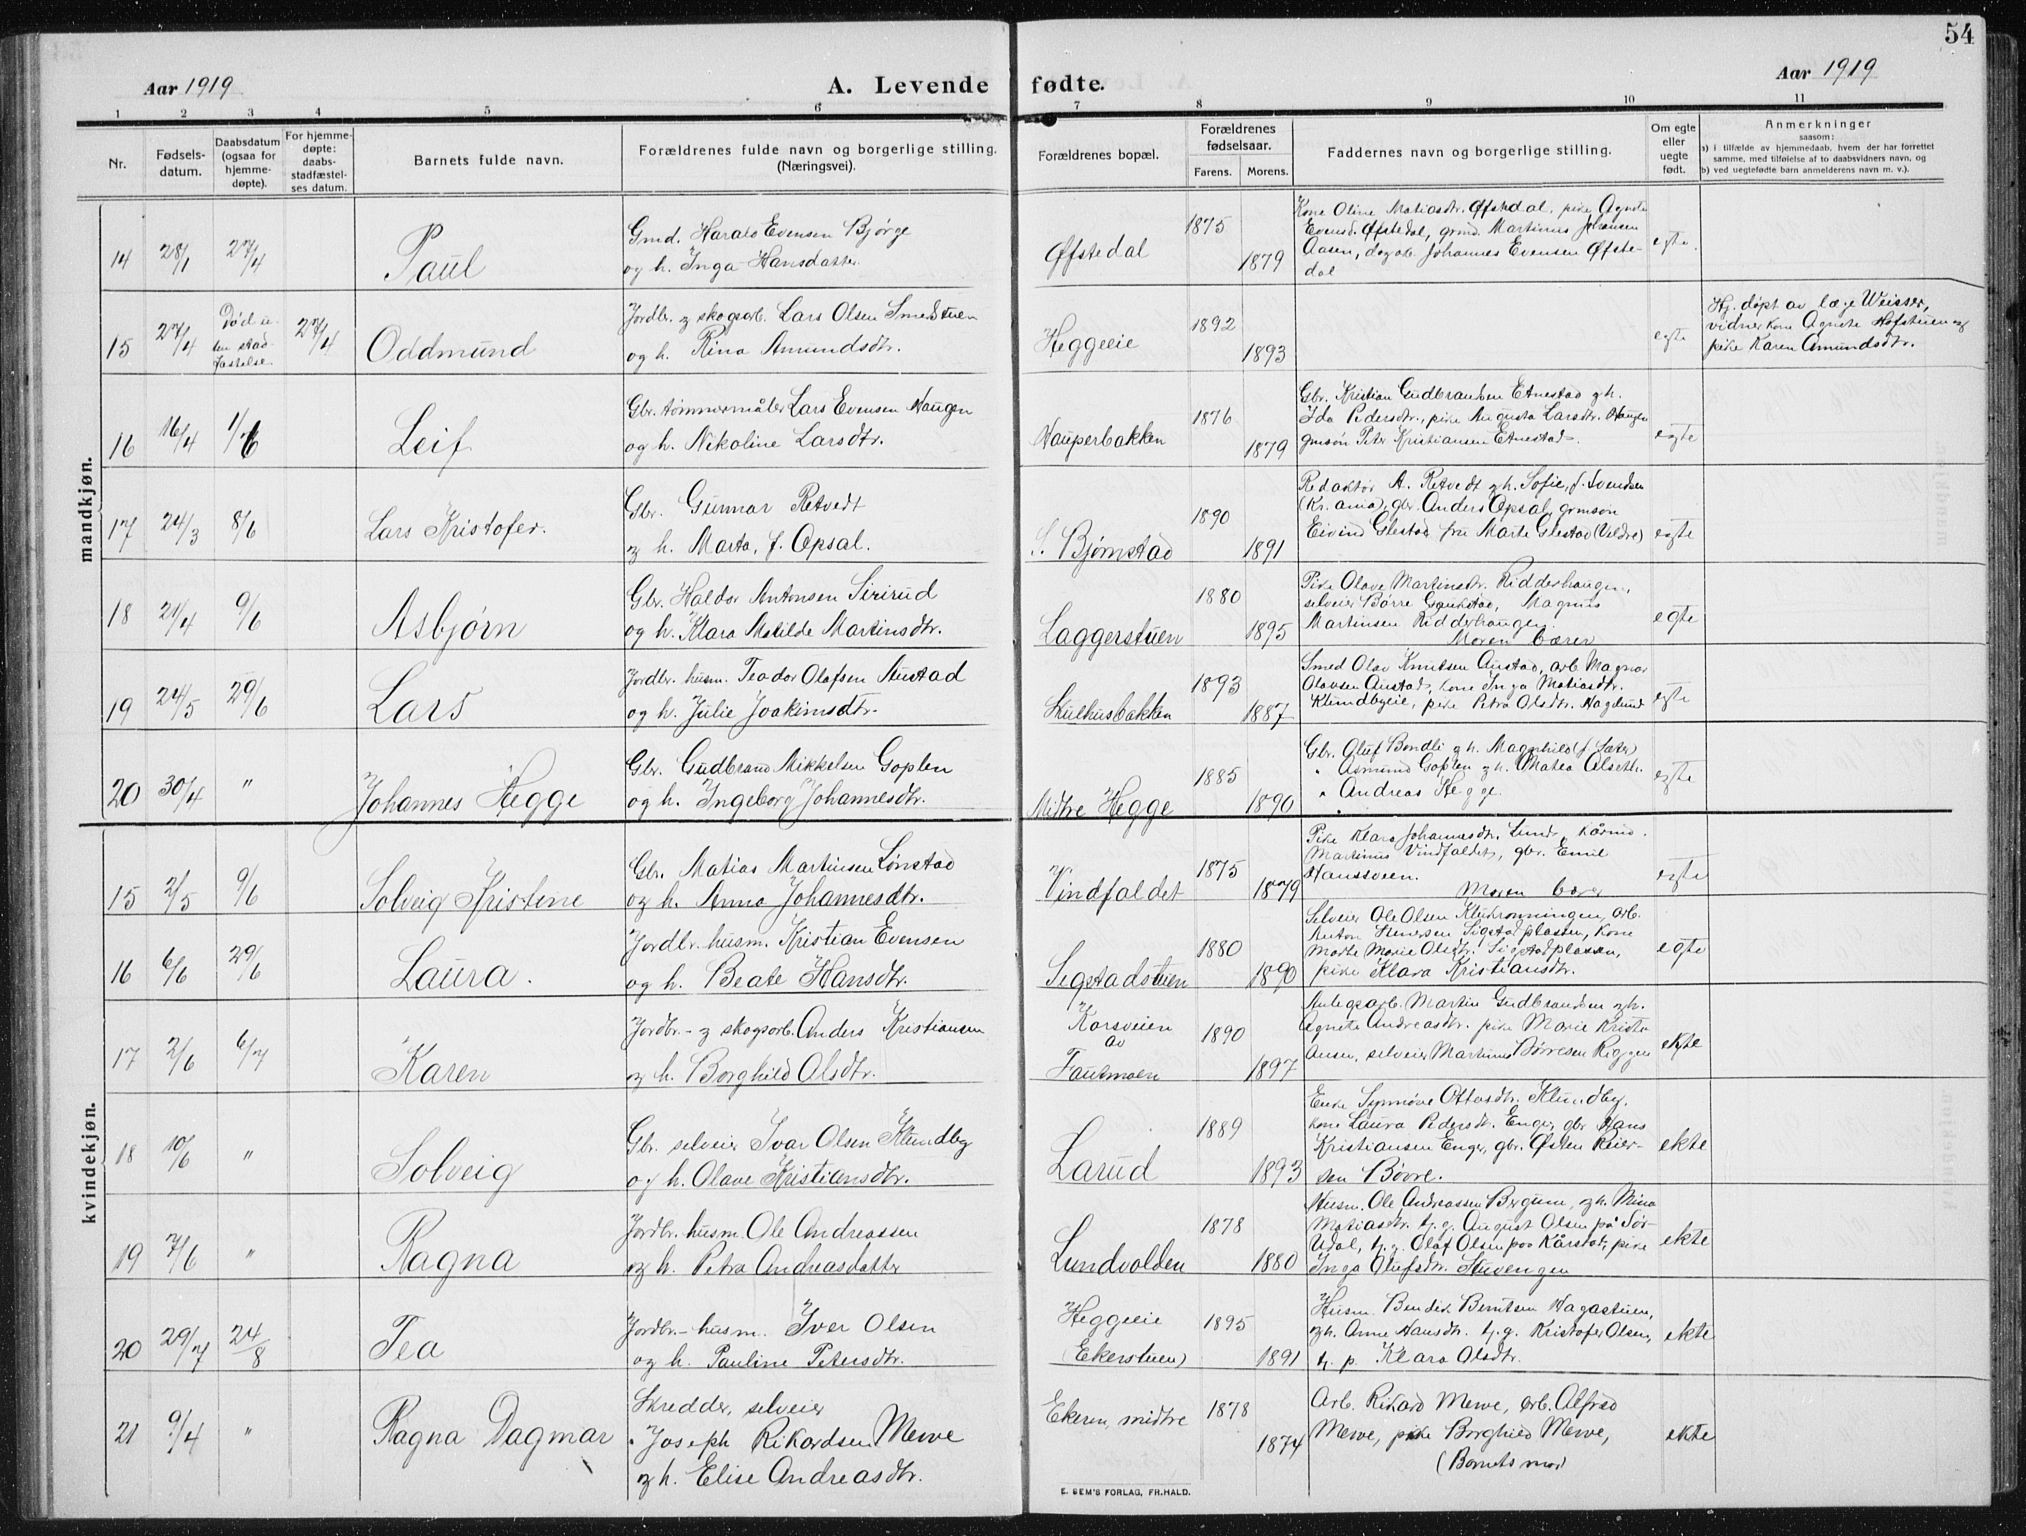 54
Aar 1919
A. Levende
fødte.
Aar 1919
1 2 3 4 5 6 7 8 9 10 11
Nr.
Fødsels-
datum.
Daabsdatum
(ogsaa for
hjemme-
døpte).
For hjemme-
døpte:
daabs-
stadfæstel-
ses datum.
Barnets fulde navn.
Forældrenes fulde navn og borgerlige stilling.
(Næringsvei).
Forældrenes bopæl.
Forældrenes
fødselsaar.
Farens. Morens.
Faddernes navn og borgerlige stilling.
Om egte
eller
uegte
født.
Anmerkninger
saasom:
a) i tilfælde av hjemmedaab, hvem der har forrettet
samme, med tilføielse af to daabsvidners navn, og
b) ved uegtefødte barn anmelderens navn m. v.).
mandkjøn.
14 28/1 27/4 Paul
Gmd. Harald Evensen Bjørge
og h. Inga Hansdatter
Øfstedal 1875 1879
Kone Oline Matiasdtr. Øfstedal, pike Agnete
Evensd. Øfstedal, grmd. Martinus Johansen
Aasen, dagarb. Johannes Evensen Øfste-
dal
egte
15 27/4 Død u-
ten stad-
fæstelse 27/4 Oddmund
Jordbr. og skogsarb. Lars Olsen Smedstuen
og h. Rina Amundsdtr.
Heggeeie 1892 1893
egte
Hj. døpt av læge Weisser,
vidner kone Agnete Hofsteien og
pike Karen Amundsdtr.
16 16/4 1/6 Leif
Gbr. tømmermåler Lars Evensen Haugen
og h. Nikoline Larsdtr.
Hauperbakken 1876 1879
Gbr. Kristian Gudbrandsen Etnestad og h.
Ida Pedersdtr., pike Augusta Larsdtr. Haugen
gmsøn Peter Kristiansen Etnestad.
egte
17 24/3 8/6 Lars Kristofer.
Gbr. Gunnar Retvedt
og h. Marta, f. Opsal.
S. Bjørnstad 1890 1891
Redaktør A. Retvedt og h. Sofie, f. Svendsen
(Kr.ania), gbr. Anders Opsal, grmsøn
Eivind Glestad, fru Marte Glestad (Veldre)
egte
18 21/4 9/6 Asbjørn
Gbr. Haldor Antonsen Sirirud
og h. Klara Matilde Martinsdtr.
Laggerstuen 1880 1895
Pike Olave Martinsdtr. Ridderhaugen,
selveier Børre Grukstad, Magnus
Martinsen Ridderhaugen.
Moren bærer
egte
19 24/5 29/6 Lars
Jordbr. husm. Teodor Olafsen Austad
og h. Julie Joakimsdtr.
Skulhusbakken 1893 1887
Smed Olav Knutsen Austad, arb. Magnar
Olavsen Austad, kone Inga Matiasdtr.
Klundbyeie, pike Petra Olsdtr. Haglund
egte
20 30/4 " Johannes Hegge
Gbr. Gudbrand Mikkelsen Goplen
og h. Ingeborg Johannesdtr.
Midtre Hegge 1885 1890
Gbr. Oluf Bondli og h. Magnhild (f. Sæter)
" Asmund Goplen og h. Matea Olsdtr.
" Andreas Hegge.
egte
kvindekjøn.
15 2/5 9/6 Solveig Kristine
Gbr. Matias Martinsen Lønstad
og h. Anna Johannesdtr.
Vindfaldet 1875 1879
Pike Klara Johannesdtr. Lund, kårmd.
Martinus Vindfaldet, gbr. Emil
Hansveen. Moren bærer
egte
16 6/6 29/6 Laura.
Jordbr. husm. Kristian Evensen
og h. Beate Hansdtr.
Segstadstuen 1880 1890
Selveier Ole Olsen Klukrønningen, arb.
Anton Iversen Sigstadplassen, kone
Marte Marie Olsdtr. Sigstadplassen,
pike Klara Kristiansdtr.
egte
17 2/6 6/7 Karen
Jordbr.- og skogsarb. Anders Kristiansen
og h. Borghild Olsdtr.
Korsveien
av
Fauemoen 1890 1897
Anlegsarb. Martin Gudbrandsen og h.
Agnete Andreasdtr. pike Marie Kristi-
ansen, selveier Martinus Børresen Riggen
ekte
18 10/6 " Solveig
Gbr. selveier Ivar Olsen Klundby
og h. Olave Kristiansdtr.
Larud 1889 1893
Enke Synnøve Ottosdtr. Klundby,
kone Laura Pedersdtr. Enge, gbr. Hans
Kristiansen Enge, gbr. Østen Reier-
sen Børre.
ekte
19 7/6 " Ragna
Jordbr. husm. Ole Andreassen
og h. Petra Andreasdatter
Lundvolden 1878 1880
Husm. Ole Andreassen Bergum, og h. Mina
Matiasdtr. t.g. August Olsen på Sør-
Udal, t.g. Olaf Olsen paa Kårstad, pike
Inga Olufsdtr. Stuvengen
ekte
20 29/7 24/8 Tea
Jordbr.- husm. Iver Olsen
og h. Pauline Petersdtr.
Heggeeie
(Ekerstuen) 1895 1891
Husm. Bendik Berntsen Hagastuen,
og h. Anne Hansdtr. t.g. Kristofer Olsen,
t. p. Klara Olsdtr.
ekte
21 9/4 " Ragna Dagmar
Skredder, selveier
Joseph Rikardsen Merve
og h. Elise Andreasdtr.
Ekeren, midtre 1878 1874
Arb. Rikard Merve, arb. Alfred
Merve, pike Borghild Merve,
(Barnets mor)
ekte
E. SEM'S FORLAG, FR.HALD.